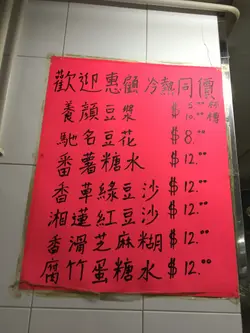 歡迎惠顧 冷熱同價
養顏豆漿 $ 5.00 杯
10.00 樽
馳名豆花 $ 8.00
番薯糖水 $ 12.00
香草綠豆沙 $ 12.00
湘蓮紅豆沙 $ 12.00
香滑芝麻糊 $ 12.00
腐竹蛋糖水 $ 12.00